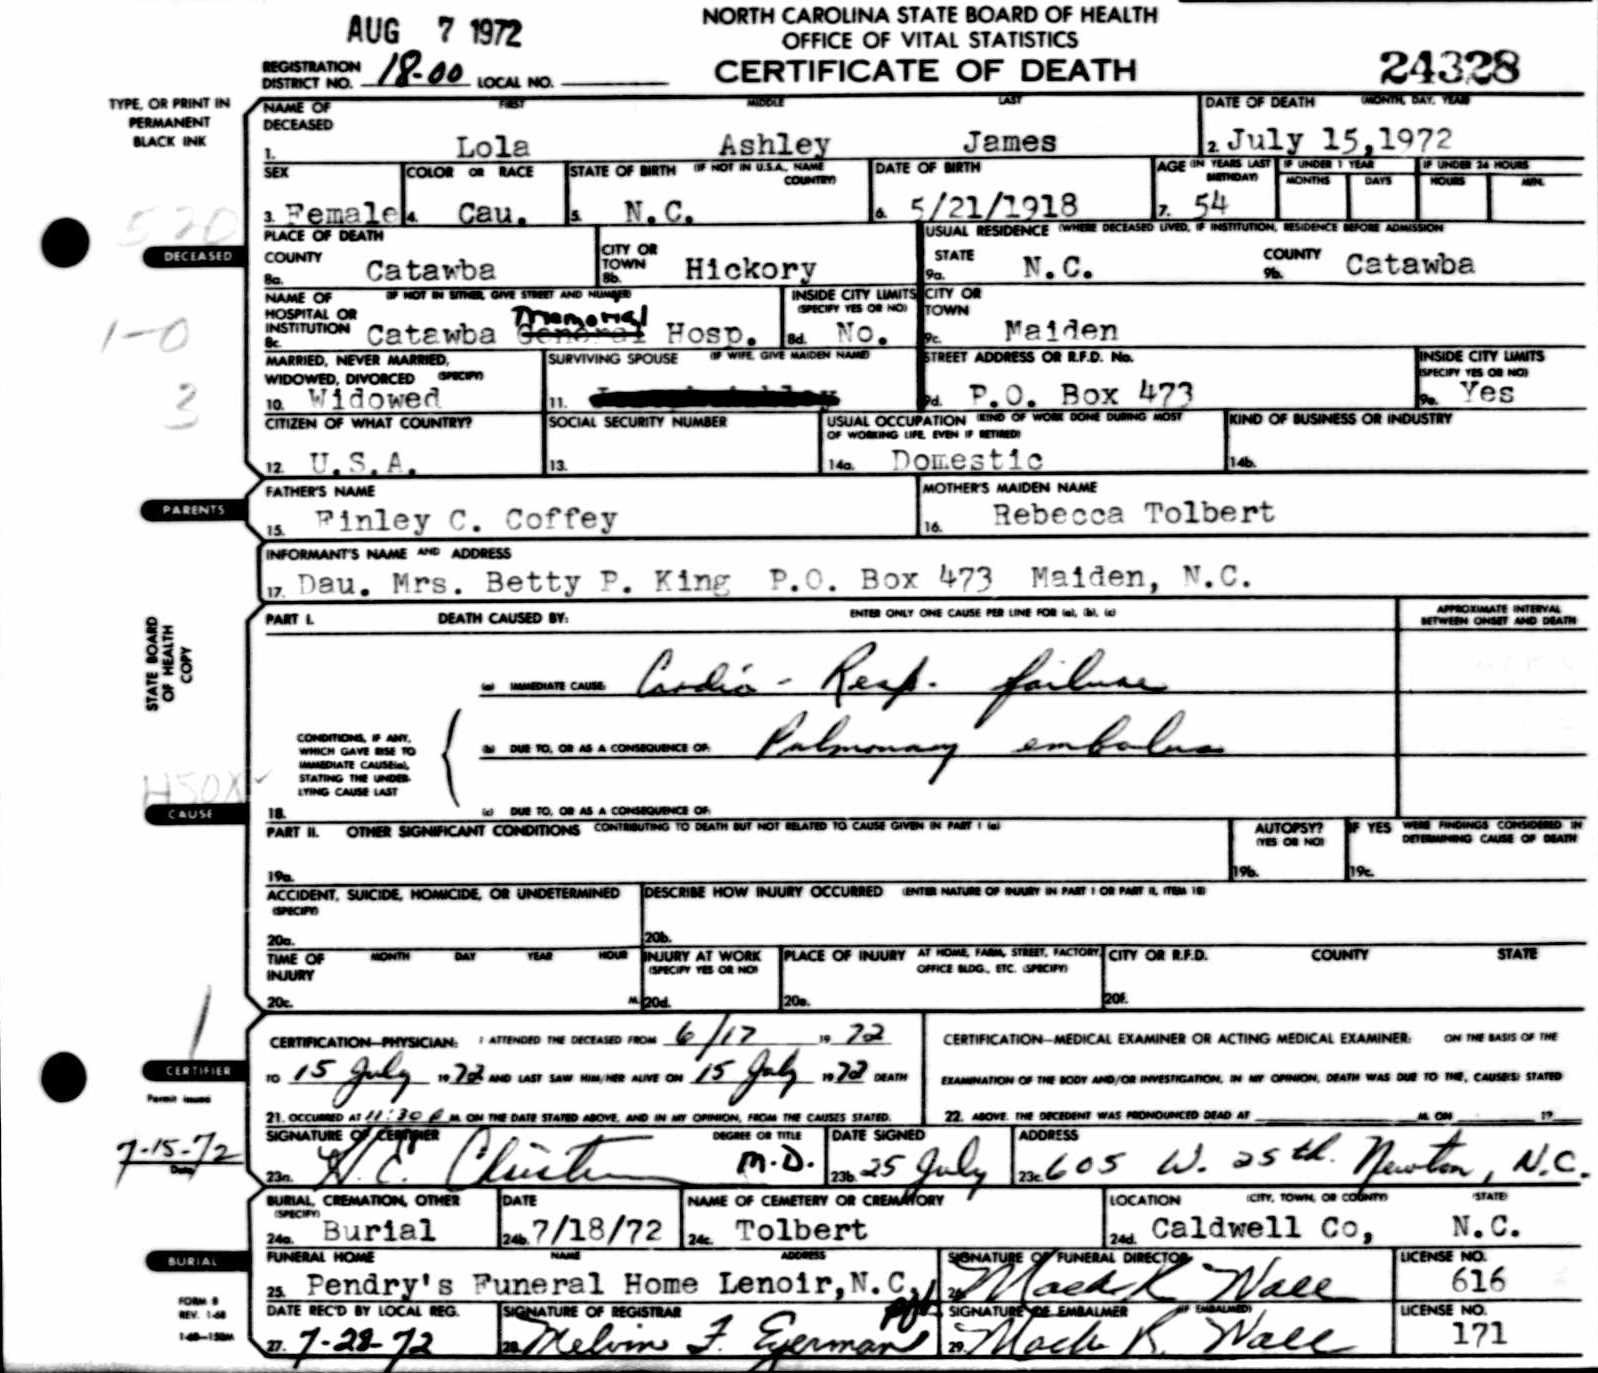 AUG 7 1972
NORTH CAROLINA STATE BOARD OF HEALTH
OFFICE OF VITAL STATISTICS
CERTIFICATE OF DEATH
24328
REGISTRATION
DISTRICT NO. 18-00 LOCAL NO.
TYPE, OR PRINT IN
PERMANENT
BLACK INK
NAME OF DECEASED FIRST MIDDLE LAST
1. Lola Ashley James
DATE OF DEATH (MONTH, DAY, YEAR)
2. July 15,1972
SEX
3. Female
COLOR OR RACE
4. Cau.
STATE OF BIRTH (IF NOT IN U.S.A., NAME COUNTRY)
5. N.C.
DATE OF BIRTH
6. 5/21/1918
AGE (IN YEARS LAST BIRTHDAY)
7. 54
IF UNDER 1 YEAR
MONTHS DAYS
IF UNDER 24 HOURS
HOURS MIN.
520
DECEASED
PLACE OF DEATH
COUNTY
8a. Catawba
CITY OR TOWN
8b. Hickory
USUAL RESIDENCE (WHERE DECEASED LIVED, IF INSTITUTION, RESIDENCE BEFORE ADMISSION
STATE
9a. N.C.
COUNTY
9b. Catawba
NAME OF HOSPITAL OR INSTITUTION (IF NOT IN EITHER, GIVE STREET AND NUMBER)
8c. Catawba General Memorial Hosp.
INSIDE CITY LIMITS (SPECIFY YES OR NO)
8d. No.
CITY OR TOWN
9c. Maiden
1-0
MARRIED, NEVER MARRIED, WIDOWED, DIVORCED (SPECIFY)
10. Widowed
SURVIVING SPOUSE (IF WIFE, GIVE MAIDEN NAME)
11.
STREET ADDRESS OR R.F.D. No.
9d. P.O. Box 473
INSIDE CITY LIMITS (SPECIFY YES OR NO)
9e. Yes
3
CITIZEN OF WHAT COUNTRY?
12. U.S.A.
SOCIAL SECURITY NUMBER
13.
USUAL OCCUPATION (KIND OF WORK DONE DURING MOST OF WORKING LIFE, EVEN IF RETIRED)
14a. Domestic
KIND OF BUSINESS OR INDUSTRY
14b.
PARENTS
FATHER'S NAME
15. Finley C. Coffey
MOTHER'S MAIDEN NAME
16. Rebecca Tolbert
INFORMANT'S NAME AND ADDRESS
17. Dau. Mrs. Betty P. King P.O. Box 473 Maiden, N.C.
STATE BOARD
OF HEALTH
COPY
PART I. DEATH CAUSED BY: ENTER ONLY ONE CAUSE PER LINE FOR (a), (b), (c)
APPROXIMATE INTERVAL
BETWEEN ONSET AND DEATH
(a) IMMEDIATE CAUSE: Cardio - Resp. failure
CONDITIONS, IF ANY,
WHICH GAVE RISE TO
IMMEDIATE CAUSE(a),
STATING THE UNDER-
LYING CAUSE LAST
(b) DUE TO, OR AS A CONSEQUENCE OF: Pulmonary embolus
18. (c) DUE TO, OR AS A CONSEQUENCE OF:
CAUSE
PART II. OTHER SIGNIFICANT CONDITIONS CONTRIBUTING TO DEATH BUT NOT RELATED TO CAUSE GIVEN IN PART I (a)
19a.
AUTOPSY?
(YES OR NO)
19b.
IF YES WERE FINDINGS CONSIDERED IN
DETERMINING CAUSE OF DEATH
19c.
ACCIDENT, SUICIDE, HOMICIDE, OR UNDETERMINED
(SPECIFY)
20a.
DESCRIBE HOW INJURY OCCURRED (ENTER NATURE OF INJURY IN PART I OR PART II, ITEM 18)
20b.
TIME OF INJURY MONTH DAY YEAR HOUR
20c. M.
INJURY AT WORK
(SPECIFY YES OR NO)
20d.
PLACE OF INJURY AT HOME, FARM, STREET, FACTORY,
OFFICE BLDG., ETC. (SPECIFY)
20e.
CITY OR R.F.D. COUNTY STATE
20f.
CERTIFIER
CERTIFICATION—PHYSICIAN: I ATTENDED THE DECEASED FROM 6/17 19 72
TO 15 July 19 72 AND LAST SAW HIM/HER ALIVE ON 15 July 19 72 DEATH
21. OCCURRED AT 11:30 P M. ON THE DATE STATED ABOVE, AND IN MY OPINION, FROM THE CAUSES STATED.
CERTIFICATION—MEDICAL EXAMINER OR ACTING MEDICAL EXAMINER: ON THE BASIS OF THE
EXAMINATION OF THE BODY AND/OR INVESTIGATION, IN MY OPINION, DEATH WAS DUE TO THE, CAUSE(S) STATED
22. ABOVE. THE DECEDENT WAS PRONOUNCED DEAD AT M. ON 19
Permit issued
7-15-72
Date
SIGNATURE OF CERTIFIER DEGREE OR TITLE
23a. H. E. M.D.
DATE SIGNED
23b. 25 July
ADDRESS
23c. 605 W. 25th. Newton, N.C.
BURIAL, CREMATION, OTHER
(SPECIFY)
24a. Burial
DATE
24b. 7/18/72
NAME OF CEMETERY OR CREMATORY
24c. Tolbert
LOCATION (CITY, TOWN, OR COUNTY) (STATE)
24d. Caldwell Co, N.C.
BURIAL
FUNERAL HOME NAME ADDRESS
25. Pendry's Funeral Home Lenoir,N.C.
SIGNATURE OF FUNERAL DIRECTOR
26. Mack R. Wall
LICENSE NO.
616
FORM 8
REV. 1-68
1-68—150M
DATE REC'D BY LOCAL REG.
27. 7-28-72
SIGNATURE OF REGISTRAR
28. Melvin F. Eyerman
SIGNATURE OF EMBALMER (IF EMBALMED)
29. Mack R. Wall
LICENSE NO.
171